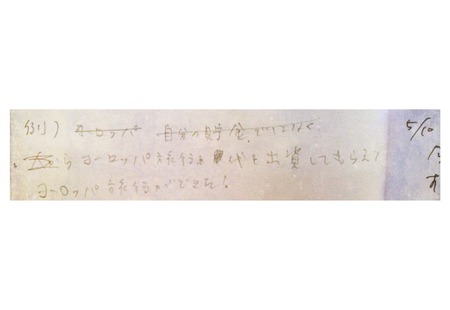 例) ヨーロッパ 自分の貯金でではなく
から ヨーロッパ旅行 代を出資してもらえ
ヨーロッパ旅行ができた!
5/10